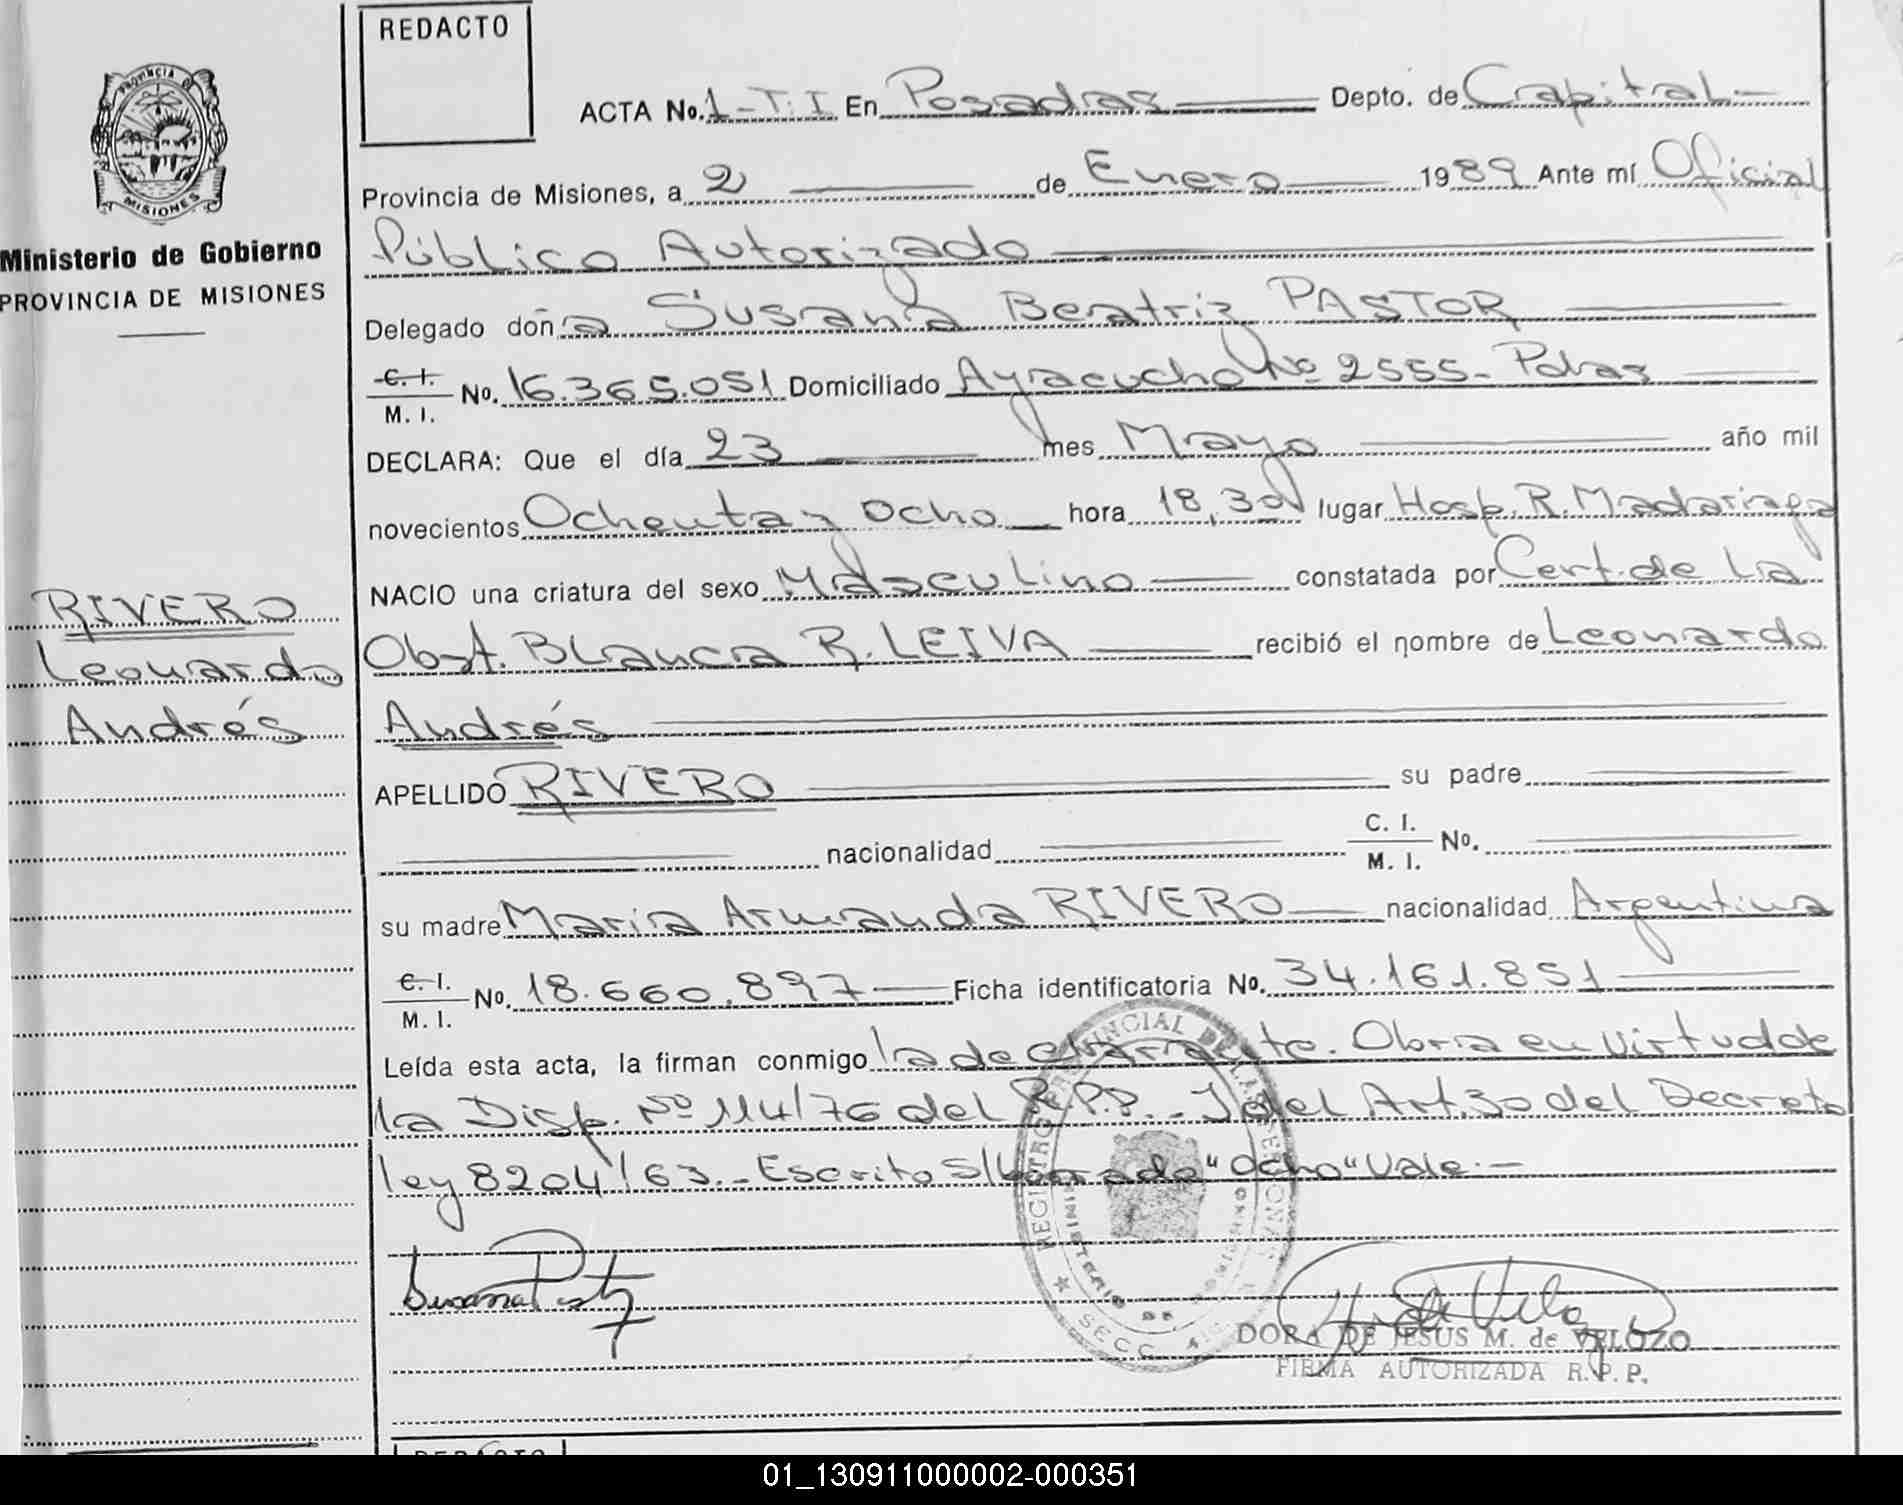 REDACTO
ACTA No. 1-T.I En Posadas Depto. de Capital.-
Provincia de Misiones, a 2 de Enero 1989 Ante mí Oficial
Público Autorizado
Delegado doña Susana Beatriz PASTOR
C. I. / M. I. No. 16.365.051 Domiciliado Ayacucho Nº 2555- Pdas
DECLARA: Que el día 23 mes Mayo año mil
novecientos Ochenta y Ocho hora 18,30 lugar Hosp. R. Madariaga
NACIO una criatura del sexo Masculino constatada por Cert. de La
Obst. Blanca R. LEIVA recibió el nombre de Leonardo
Andrés
APELLIDO RIVERO su padre
nacionalidad C. I. / M. I. No.
su madre María Armanda RIVERO nacionalidad Argentina
C. I. / M. I. No. 18.660.897 Ficha identificatoria No. 34.161.851
Leída esta acta, la firman conmigo la declarante. Obra en virtud de
la Disp. Nº 114/76 del R.P.P. y del Art. 30 del Decreto
ley 8204/63.- Escrito s/borrado "Ocho" Vale.-
PROVINCIA DE
MISIONES
Ministerio de Gobierno
PROVINCIA DE MISIONES
RIVERO
Leonardo
Andrés
Susana Pastor
REGISTRO PROVINCIAL DE LAS PERSONAS
MINISTERIO DE GOBIERNO
SECC.
DORA DE JESUS M. de VELOZO
FIRMA AUTORIZADA R. P. P.
REDACTO
01_130911000002-000351